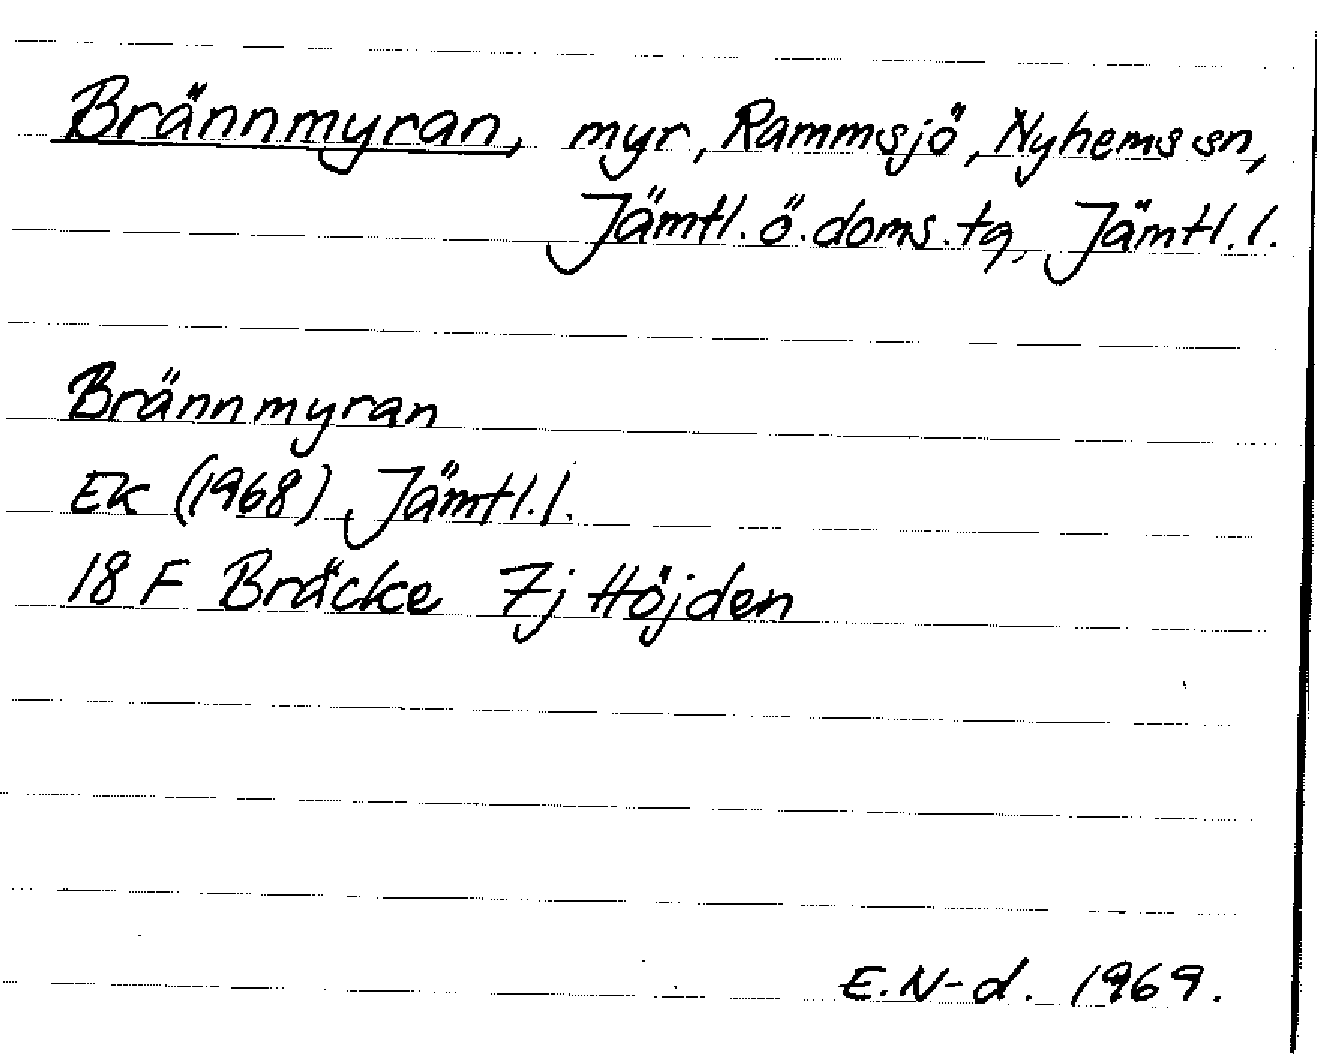 Brännmyran, myr, Rammsjö, Nyhems sn,
Jämtl. ö. doms. tg, Jämtl. l.
Brännmyran
EK (1968) Jämtl. l.
18 F Bräcke 7j Höjden
E.N-d. 1969.